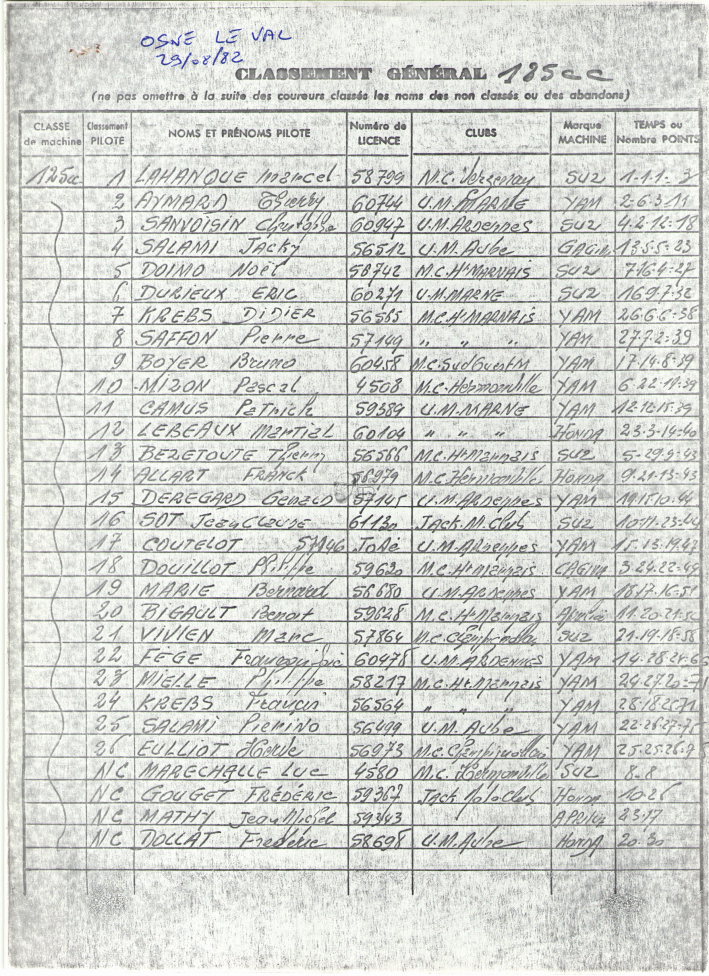 OSNE LE VAL
29/08/82
CLASSEMENT GÉNÉRAL 125cc
(ne pas omettre à la suite des coureurs classés les noms des non classés ou des abandons)
CLASSE de machine Classement PILOTE NOMS ET PRÉNOMS PILOTE Numéro de LICENCE CLUBS Marque MACHINE TEMPS ou Nombre POINTS
125cc 1 LAHANQUE Marcel 58799 M.C. Verzenay SUZ 1-1-1- 3
2 AYMARD Thierry 60744 U.M. MARNE YAM 2-6-3 11
3 SANVOISIN Christophe 60947 U.M. Ardennes SUZ 4-2-12-18
4 SALAMI Jacky 56512 U.M. Aube 13-5-5-23
5 DOIMO Noël 58742 M.C. Ht MARNAIS SUZ 7-16-4-27
6 DURIEUX ERIC 60271 U.M. MARNE SUZ 16-9-7-32
7 KREBS DIDIER 56565 M.C. Ht MARNAIS YAM
8 SAFFON Pierre 57149 " " " YAM
9 BOYER Bruno 60458 M.C. Sud Ouest M YAM 17-14-8-39
10 MIZON Pascal 4508 M.C. Hermonville YAM 6-22-11-39
11 CAMUS Patrick 59389 U.M. MARNE YAM 12-12-15-39
12 LEBEAUX Martial 60104 " " " HONDA 23-3-14-40
13 BEZETOUTE Thierry 56566 M.C. Ht Marnais SUZ 5-29-9-43
14 ALLART FRANCK 56979 M.C. Hermonville Honda 9-21-13-43
15 DEREGARD Gerald 57145 U.M. Ardennes YAM 19-15-10-44
16 SOT Jean Claude 61130 Jack M. Club SUZ 10-11-23-44
17 COUTELOT 57146 José U.M. Ardennes YAM 15-13-19-47
18 DOUILLOT Philippe 59620 M.C. Ht Marnais CAGIVA 3-24-22-49
19 MARIE Bernard 56680 U.M. Ardennes YAM 18-17-16-51
20 BIGAULT Benoit 59628 M.C. Ht Marnais 11-20-21-52
21 VIVIEN Marc 57864 SUZ 21-19-18-58
22 FEGE 60478 U.M. ARDENNES YAM
23 MIELLE Philippe 58217 M.C. Ht Marnais YAM 24-27-20-71
24 KREBS Francis 56564 " " " YAM
25 SALAMI Pierino 56499 U.M. Aube YAM
26 EULLIOT Hervé 56973 YAM
NC MARECHALLE Luc 4580 M.C. Hermonville SUZ 8-8
NC GOUGET FRÉDÉRIC 59367 Jack Moto Club Honda
NC MATHY Jean Michel 59343 APRILIA 23-17
NC DOLLAT Frederic 58698 U.M. Aube HONDA 20-30